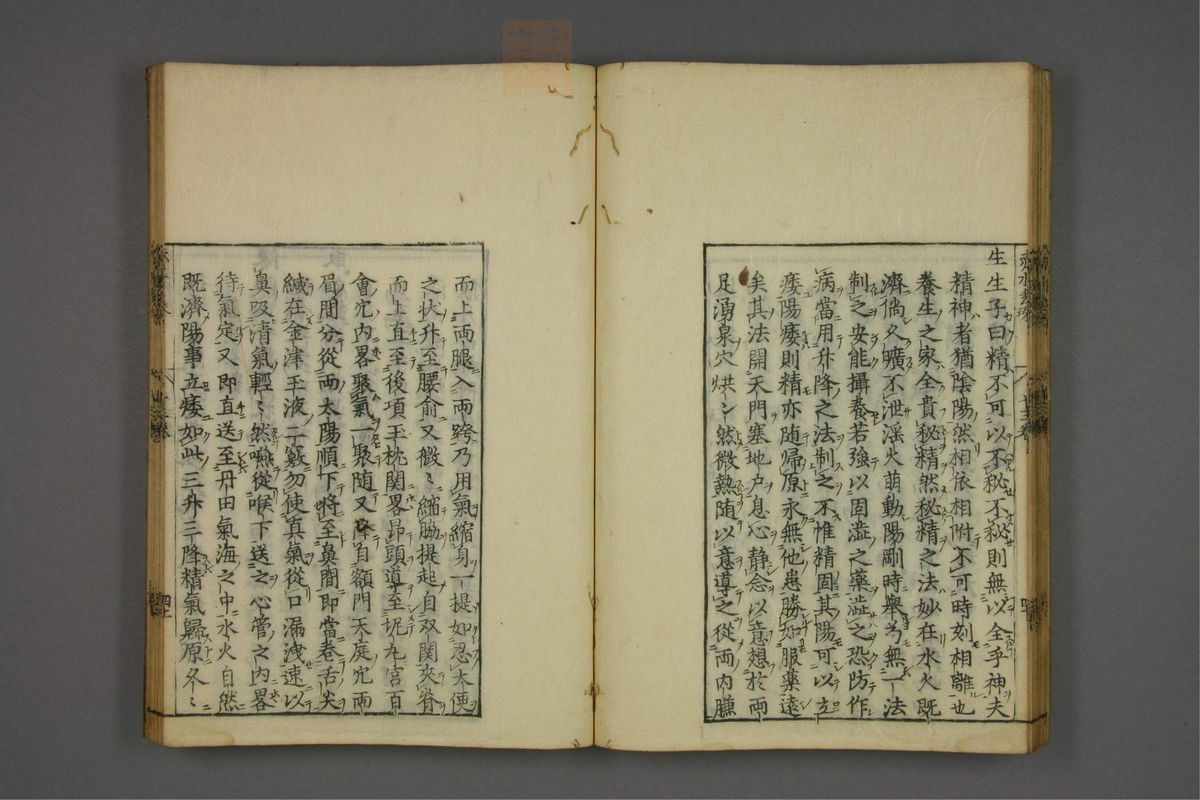 生生子曰精不可以不秘不秘則無以全乎神夫
精神者猶陰陽然相依相附不可時刻相離也
養生之家全貴秘精然秘精之法妙在水火既
濟倘久曠不泄淫火萌動陽剛時舉芍無一法
制之安能攝養若強以固澁之藥澁之恐防作
病當用升降之法制之不惟精固其陽可以立
痿陽痿則精亦随歸原永無他患勝如服藥遠
矣其法開天門塞地户息心静念以意想於両
足湧泉穴烘〻然微熱随以意導之從両内臁
而上両腿入両跨乃用氣縮身一提如忍大便
之状升至腰俞又微〻縮脇提起自双関夾脊
而上直至後項玉枕関畧昻頭導至坭丸宮百
會穴内畧聚氣一聚随又降自額門天庭穴両
眉間分從両太陽順下將至鼻間即當卷舌尖
緘在金津玉液二竅勿使真氣從口漏洩速以
鼻吸清氣輕〻然嚥從喉下送之心管之内畧
待氣定又即直送至丹田氣海之中水火自然
既濟陽事立痿如此三升三降精氣歸原冬〻